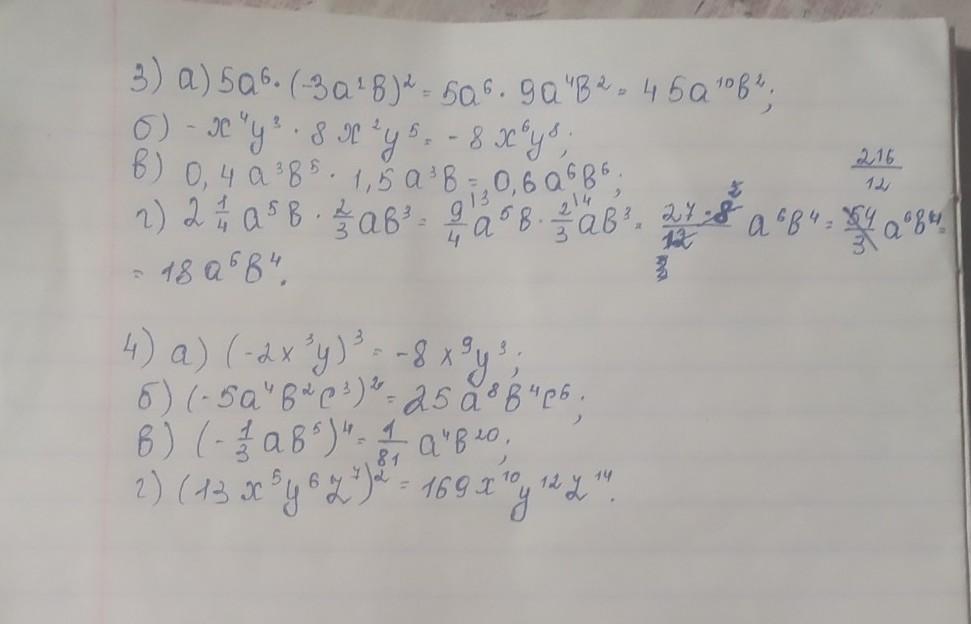 3) а) 5a⁶ · (-3a²b)² = 5a⁶ · 9a⁴b² = 45a¹⁰b²;
б) - x⁴y³ · 8x²y⁵ = - 8x⁶y⁸;
в) 0,4a³b⁵ · 1,5a³b = 0,6a⁶b⁶;
216/12
г) 2 1/4 a⁵b · 2/3 ab³ = 9/4 |3 a⁵b · 2/3 |4 ab³ = 27·8/12 a⁶b⁴ = 54/3 a⁶b⁴ =
= 18a⁶b⁴.
4) а) (-2x³y)³ = -8x⁹y³;
б) (-5a⁴b²c³)² = 25a⁸b⁴c⁶;
в) (- 1/3 ab⁵)⁴ = 1/81 a⁴b²⁰;
г) (13x⁵y⁶z⁷)² = 169x¹⁰y¹²z¹⁴.